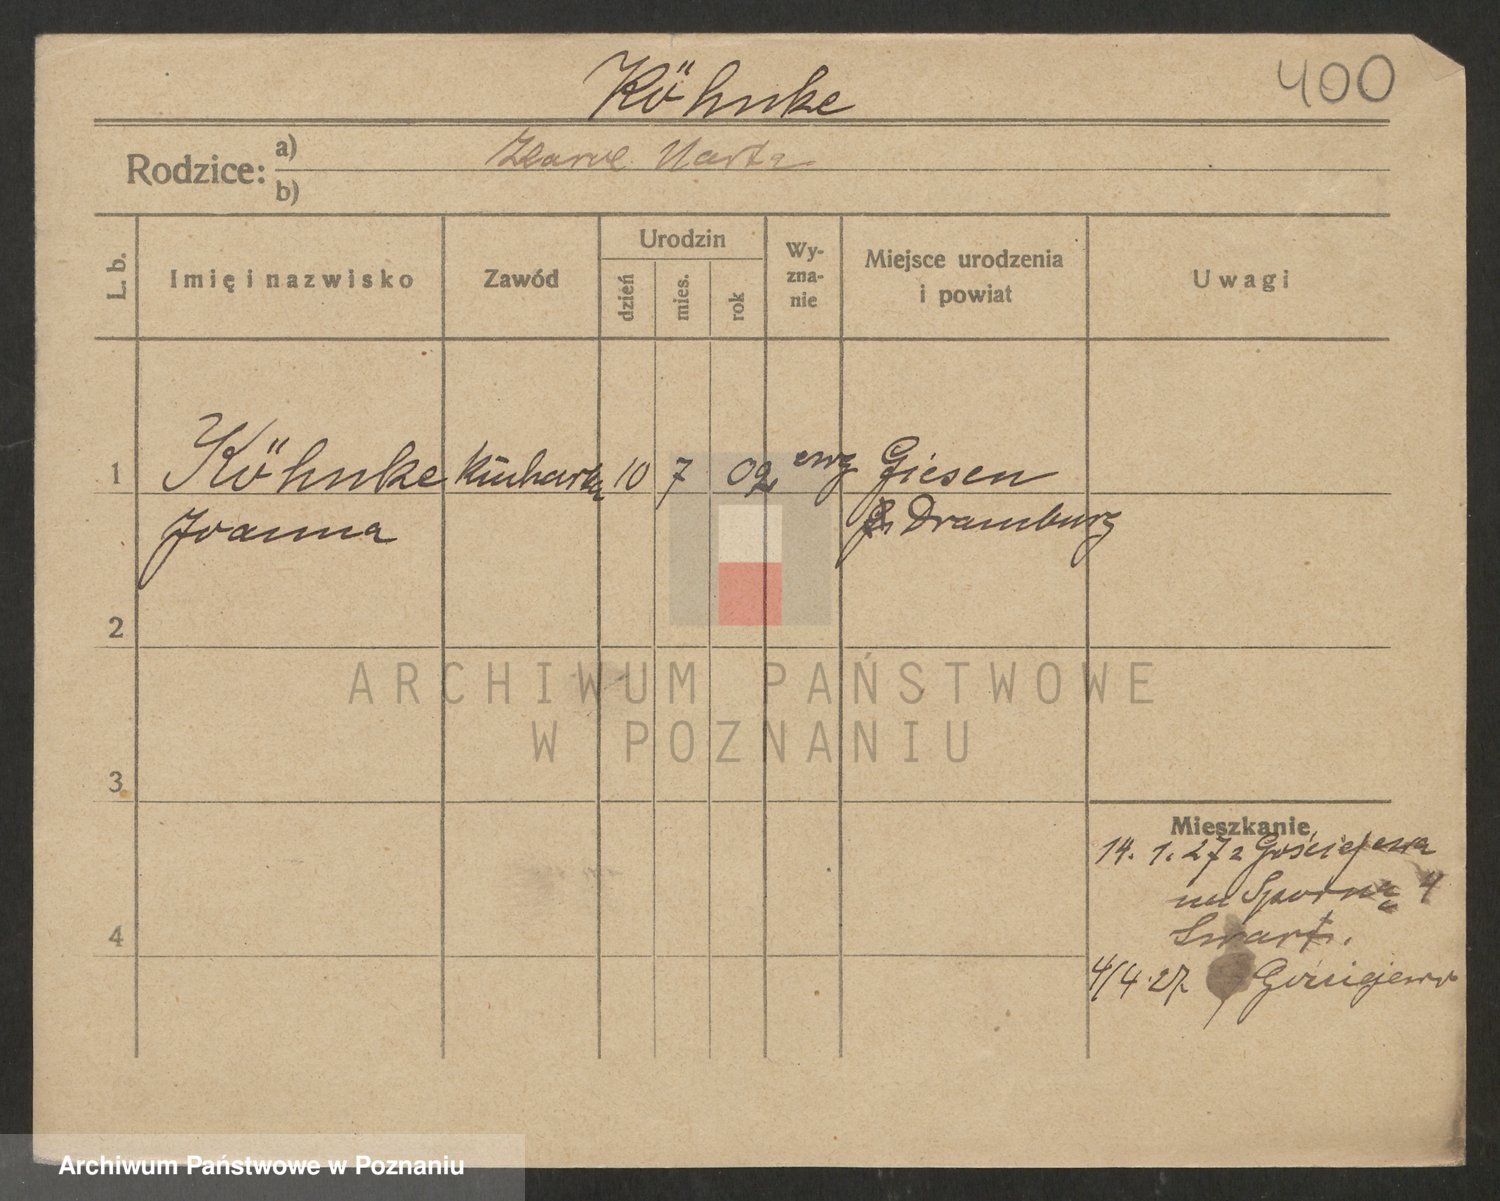 Köhnke
400
Rodzice:
a)
b)
L. b.
Imię i nazwisko
Zawód
Urodzin
dzień
mies.
rok
Wy-
zna-
nie
Miejsce urodzenia
i powiat
Uwagi
1 Köhnke kucharka 10 7 02 ewg Giesen
Joanna Dramburg
2
3
4
Mieszkanie
14. 1. 27 z Gościejewa
na Sporną 4
4/4 27. Gościejewo
ARCHIWUM PAŃSTWOWE
W POZNANIU
Archiwum Państwowe w Poznaniu